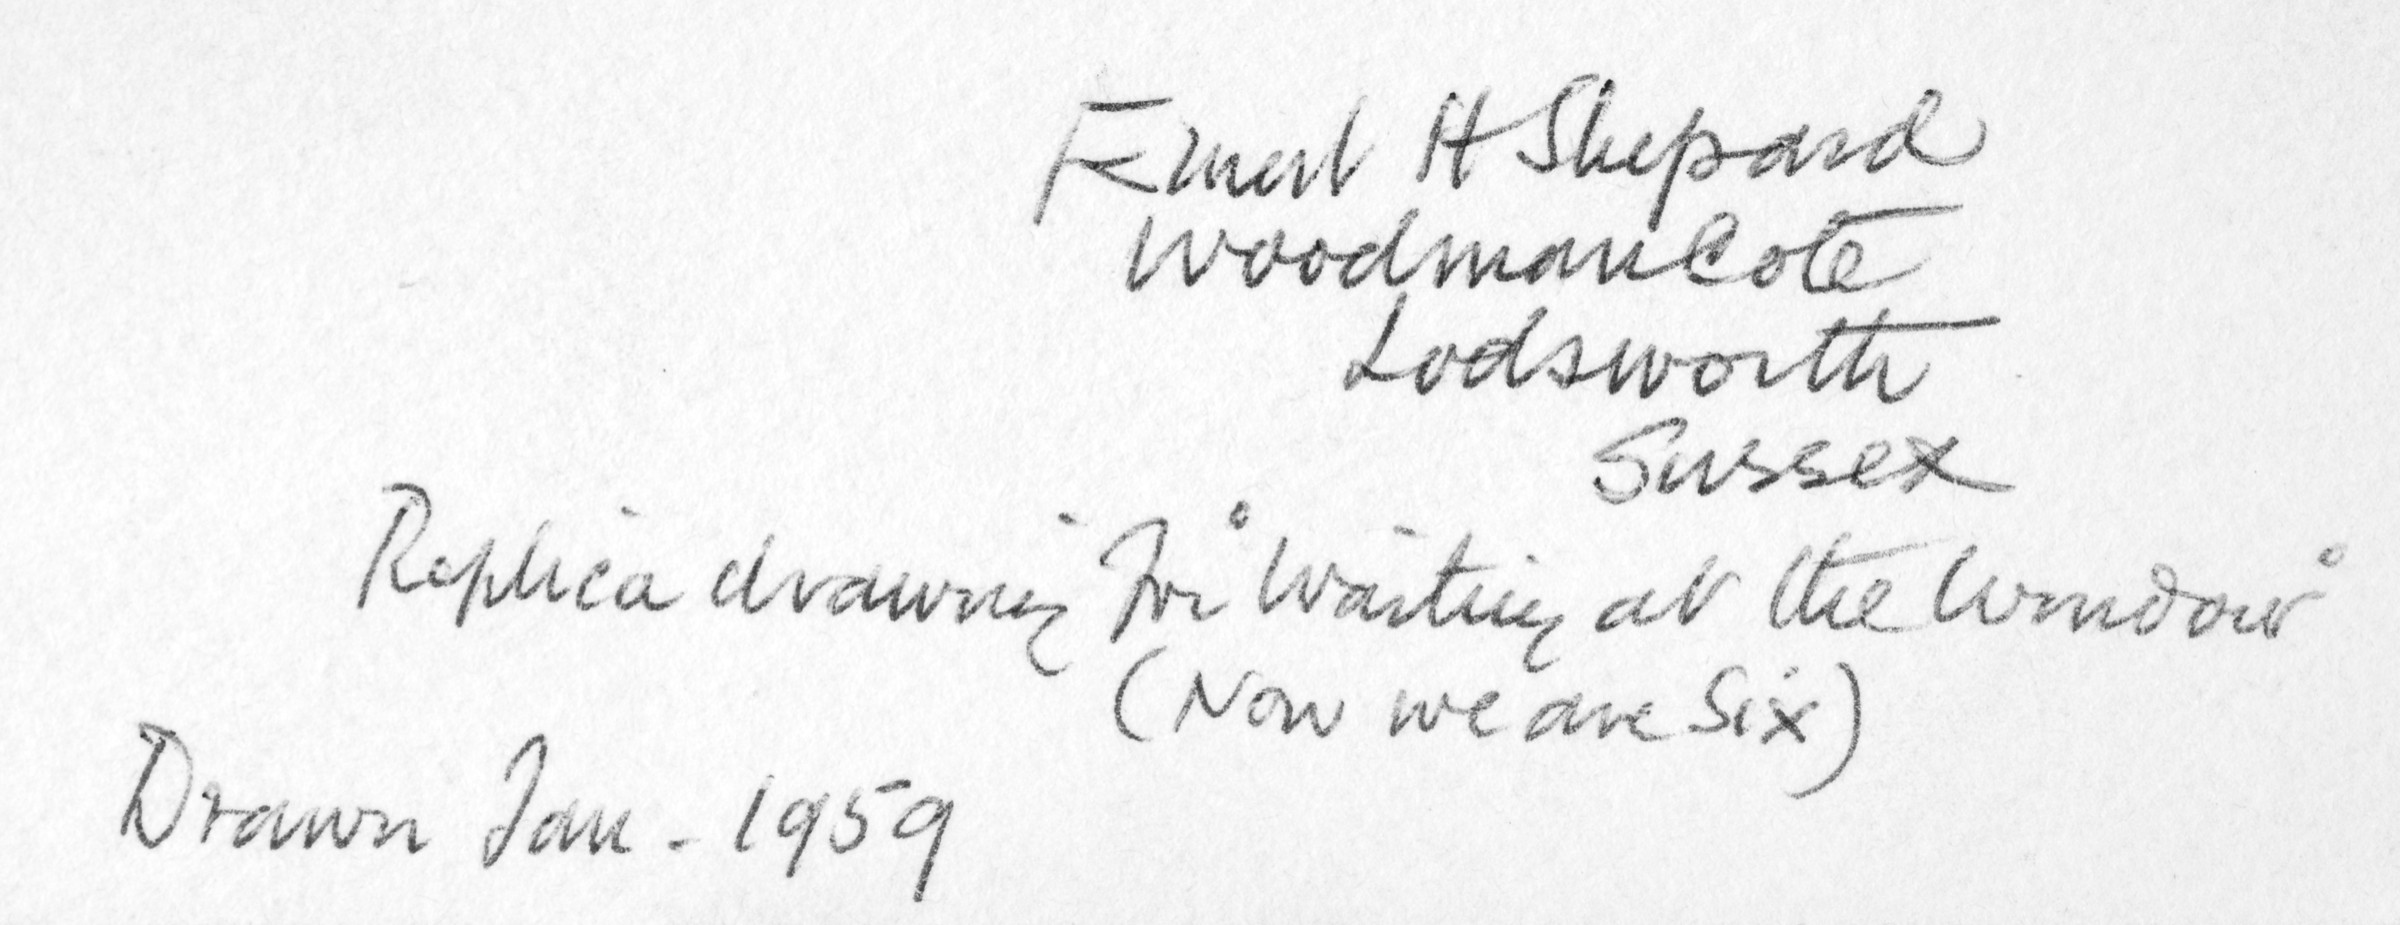 Ernest H Shepard
Woodmancote
Lodsworth
Sussex
Replica drawing for "Waiting at the Window"
(Now we are Six)
Drawn Jan - 1959